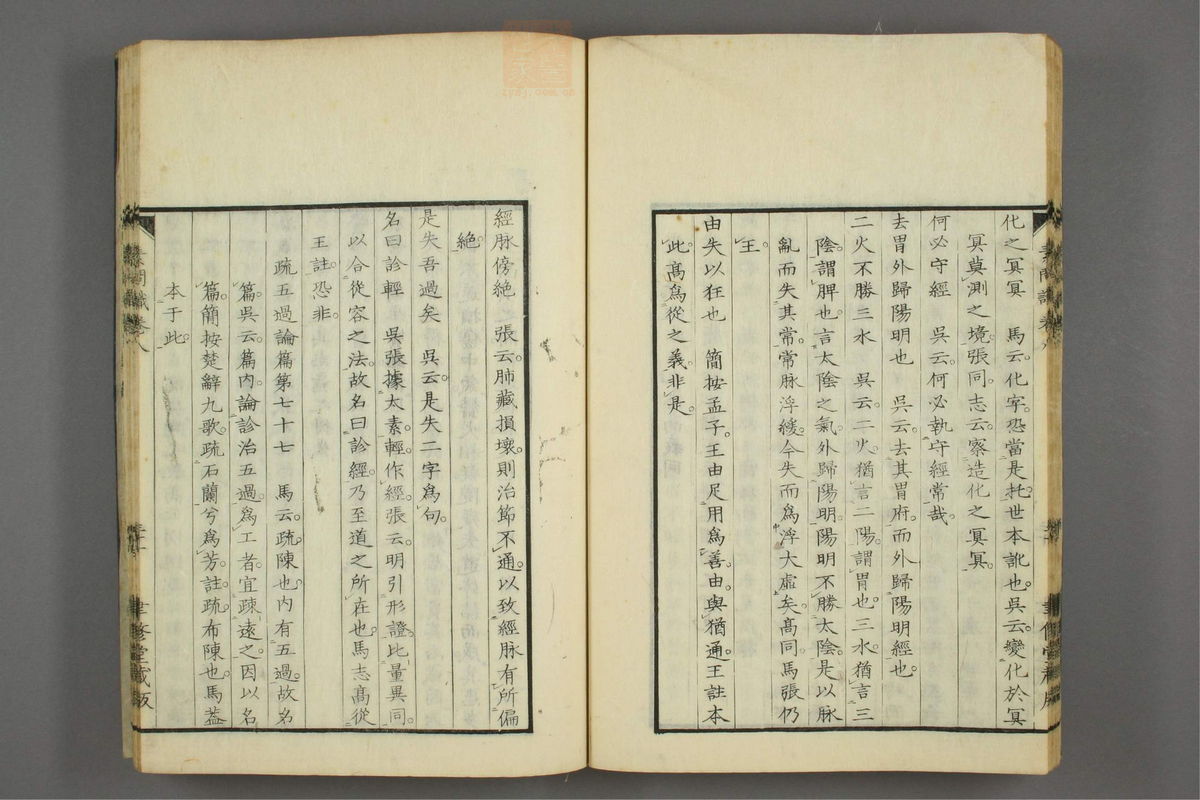 化之冥冥　馬云。化字。恐當是托。世本訛也。吳云。變化於冥
冥莫測之境。張同。志云。察造化之冥冥。
何必守經　吳云。何必執守經常哉。
去胃外歸陽明也　吳云。去其胃府。而外歸陽明經也。
二火不勝三水　吳云。二火。猶言二陽。謂胃也。三水。猶言三
陰。謂脾也。言太陰之氣。外歸陽明。陽明不勝太陰。是以脉
亂而失其常。常脉浮緩。今失而爲浮大虛矣。高同。馬張仍
王。
由失以狂也　簡按孟子。王由足用爲善。由與猶通。王註本
此。高爲從之義。非是。
經脉傍絶　張云。肺藏損壞。則治節不通。以致經脉有所偏
絶。
是失吾過矣　吳云。是失二字爲句。
名曰診輕　吳張據太素。輕作經。張云。明引形證。比量異同。
以合從容之法。故名曰診經。乃至道之所在也。馬志高從
王註。恐非。
疏五過論篇第七十七　馬云。疏。陳也。内有五過。故名
篇。吳云。篇内。論診治五過。爲工者。宜疎遠之。因以名
篇。簡按楚辭九歌。疏石蘭兮爲芳。註。疏。布陳也。馬蓋
本于此。
素問識卷八
聿修堂藏版